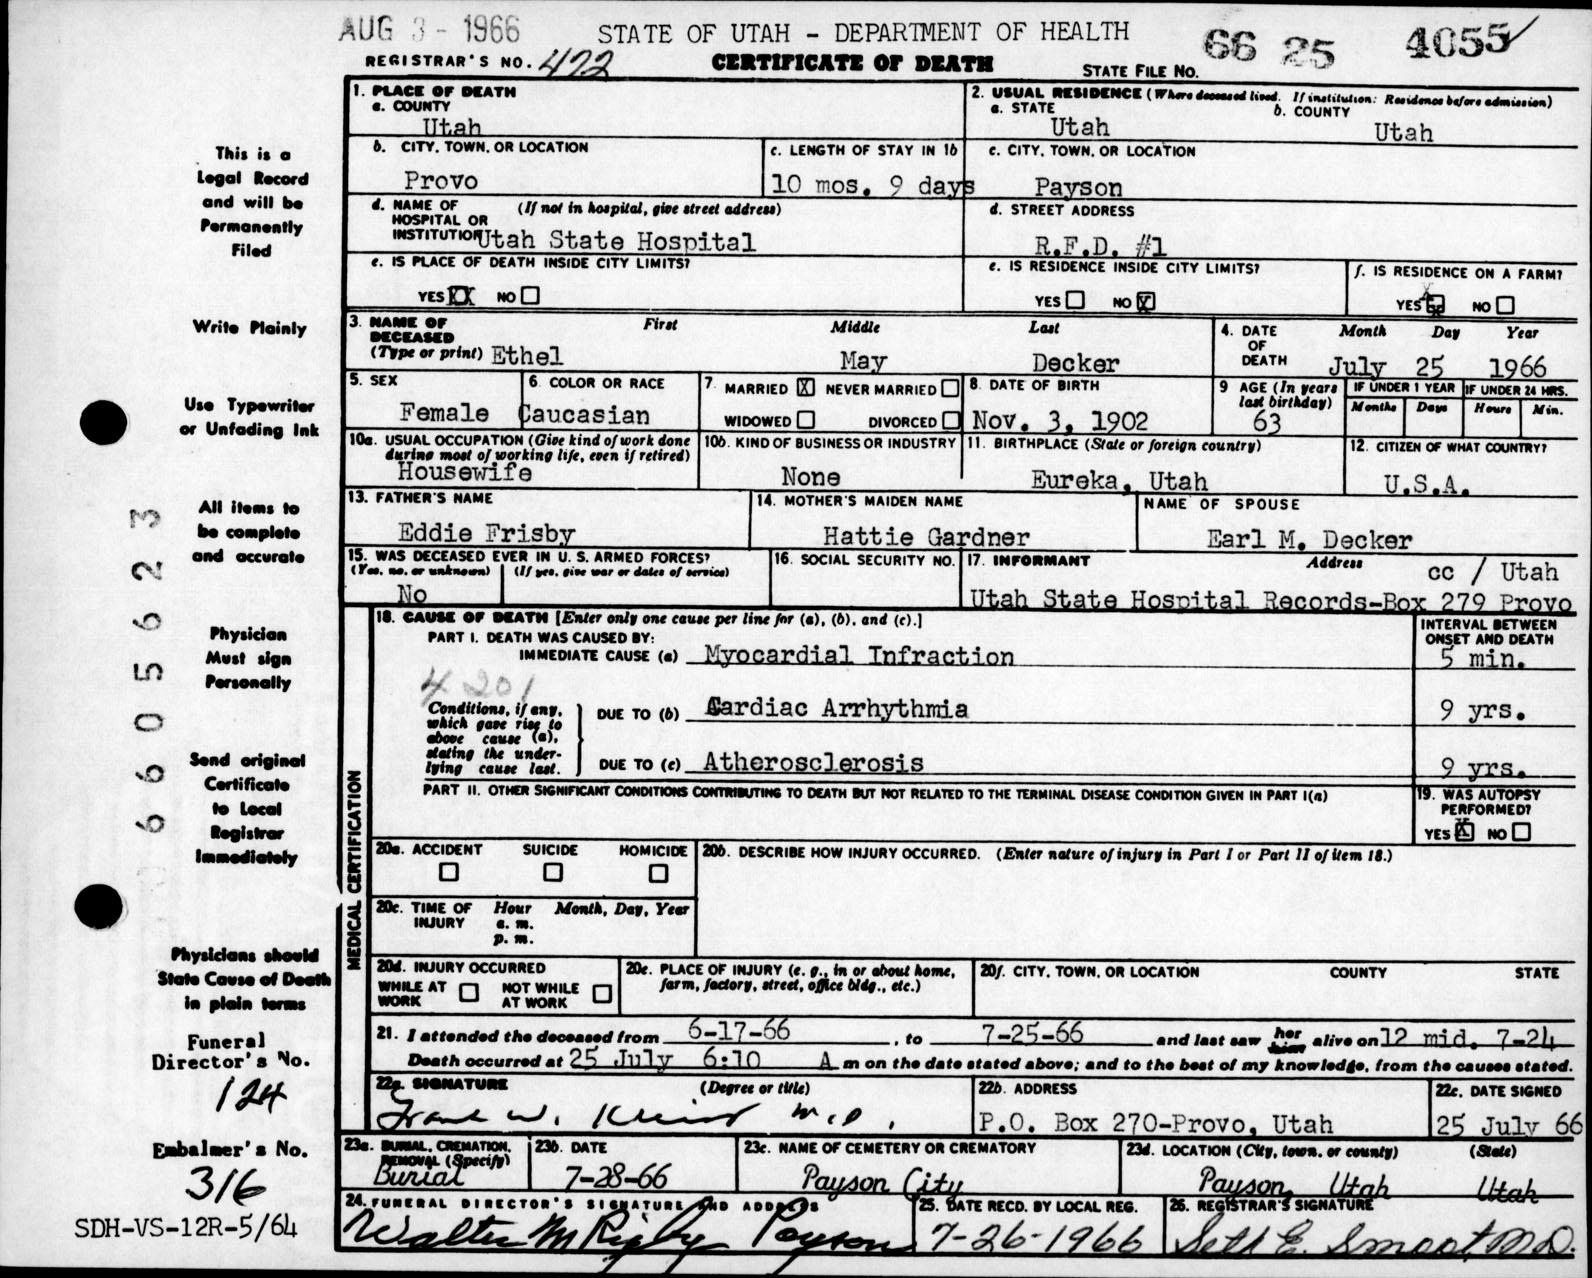 AUG 3 - 1966 STATE OF UTAH - DEPARTMENT OF HEALTH 66 25 4055
REGISTRAR'S NO. 472 CERTIFICATE OF DEATH STATE FILE NO.
1. PLACE OF DEATH
a. COUNTY
Utah
2. USUAL RESIDENCE (Where deceased lived. If institution: Residence before admission)
a. STATE b. COUNTY
Utah Utah
b. CITY, TOWN, OR LOCATION
Provo
c. LENGTH OF STAY IN 1b
10 mos. 9 days
c. CITY, TOWN, OR LOCATION
Payson
d. NAME OF (If not in hospital, give street address)
HOSPITAL OR
INSTITUTION Utah State Hospital
d. STREET ADDRESS
R.F.D. #1
e. IS PLACE OF DEATH INSIDE CITY LIMITS?
YES XX NO
e. IS RESIDENCE INSIDE CITY LIMITS?
YES NO X
f. IS RESIDENCE ON A FARM?
YES X NO
3. NAME OF First Middle Last
DECEASED
(Type or print) Ethel May Decker
4. DATE Month Day Year
OF
DEATH July 25 1966
5. SEX
Female
6. COLOR OR RACE
Caucasian
7. MARRIED X NEVER MARRIED
WIDOWED DIVORCED
8. DATE OF BIRTH
Nov. 3, 1902
9 AGE (In years
last birthday)
63
IF UNDER 1 YEAR IF UNDER 24 HRS.
Months Days Hours Min.
10a. USUAL OCCUPATION (Give kind of work done
during most of working life, even if retired)
Housewife
10b. KIND OF BUSINESS OR INDUSTRY
None
11. BIRTHPLACE (State or foreign country)
Eureka, Utah
12. CITIZEN OF WHAT COUNTRY?
U.S.A.
13. FATHER'S NAME
Eddie Frisby
14. MOTHER'S MAIDEN NAME
Hattie Gardner
NAME OF SPOUSE
Earl M. Decker
15. WAS DECEASED EVER IN U. S. ARMED FORCES?
(Yes, no, or unknown) (If yes, give war or dates of service)
No
16. SOCIAL SECURITY NO.
17. INFORMANT Address
cc / Utah
Utah State Hospital Records-Box 279 Provo
18. CAUSE OF DEATH [Enter only one cause per line for (a), (b), and (c).]
PART I. DEATH WAS CAUSED BY:
IMMEDIATE CAUSE (a) Myocardial Infraction
INTERVAL BETWEEN
ONSET AND DEATH
5 min.
4201
Conditions, if any,
which gave rise to
above cause (a),
stating the under-
lying cause last.
DUE TO (b) Cardiac Arrhythmia 9 yrs.
DUE TO (c) Atherosclerosis 9 yrs.
PART II. OTHER SIGNIFICANT CONDITIONS CONTRIBUTING TO DEATH BUT NOT RELATED TO THE TERMINAL DISEASE CONDITION GIVEN IN PART I(a)
19. WAS AUTOPSY
PERFORMED?
YES X NO
MEDICAL CERTIFICATION
20a. ACCIDENT SUICIDE HOMICIDE
20b. DESCRIBE HOW INJURY OCCURRED. (Enter nature of injury in Part I or Part II of item 18.)
20c. TIME OF Hour Month, Day, Year
INJURY a. m.
p. m.
20d. INJURY OCCURRED
WHILE AT NOT WHILE
WORK AT WORK
20e. PLACE OF INJURY (e. g., in or about home,
farm, factory, street, office bldg., etc.)
20f. CITY, TOWN, OR LOCATION COUNTY STATE
21. I attended the deceased from 6-17-66, to 7-25-66 and last saw her him alive on 12 mid. 7-24
Death occurred at 25 July 6:10 A m on the date stated above; and to the best of my knowledge, from the causes stated.
22a. SIGNATURE (Degree or title)
Frank W. M.D.
22b. ADDRESS
P.O. Box 270-Provo, Utah
22c. DATE SIGNED
25 July 66
23a. BURIAL, CREMATION,
REMOVAL (Specify)
Burial
23b. DATE
7-28-66
23c. NAME OF CEMETERY OR CREMATORY
Payson City
23d. LOCATION (City, town, or county) (State)
Payson, Utah Utah
24. FUNERAL DIRECTOR'S SIGNATURE AND ADDRESS
Walter M Rigby Payson
25. DATE RECD. BY LOCAL REG.
7-26-1966
26. REGISTRAR'S SIGNATURE
Seth E. Smoot, M.D.
This is a
Legal Record
and will be
Permanently
Filed
Write Plainly
Use Typewriter
or Unfading Ink
All items to
be complete
and accurate
Physician
Must sign
Personally
Send original
Certificate
to Local
Registrar
Immediately
Physicians should
State Cause of Death
in plain terms
Funeral
Director's No.
124
Embalmer's No.
316
SDH-VS-12R-5/64
6605623